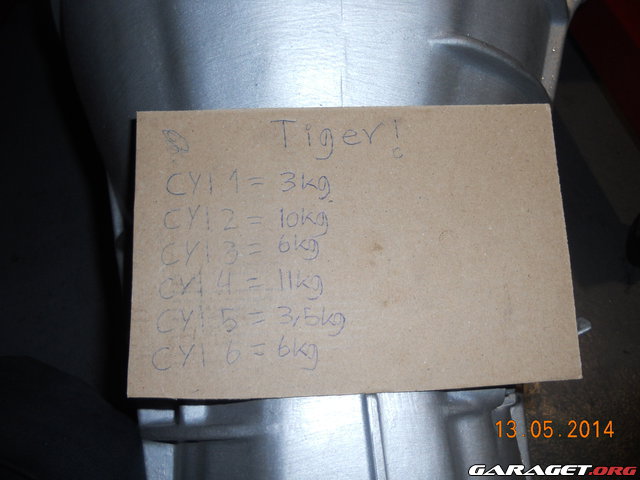 Tiger!
CYl 1 = 3kg
CYl 2 = 10kg
CYl 3 = 6kg
CYl 4 = 11kg
CYl 5 = 3,5kg
CYl 6 = 6kg
13.05.2014
GARAGET.ORG